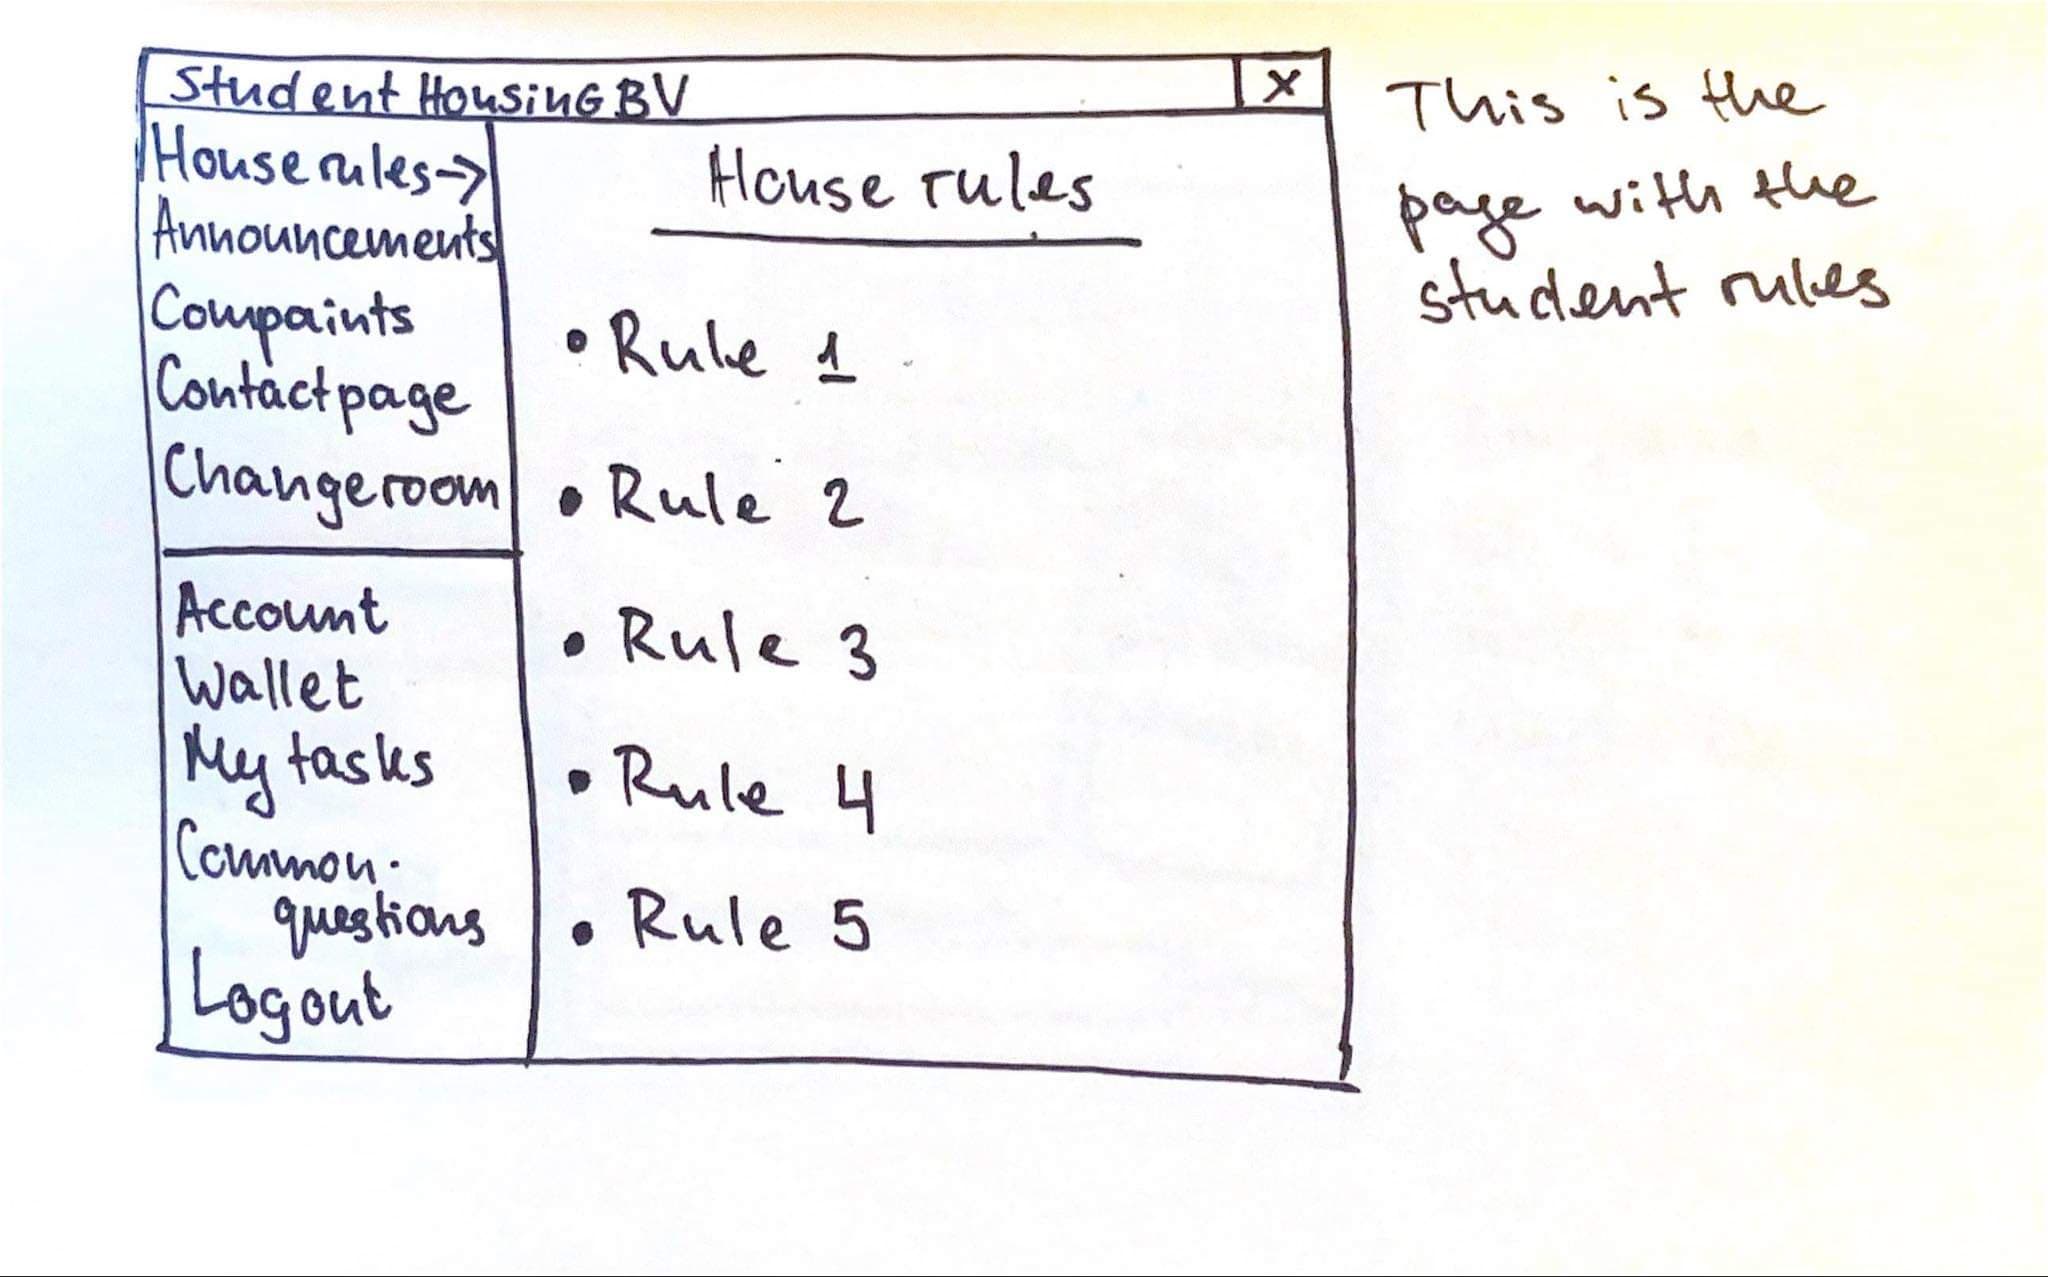 Student HousinG BV X
House rules→
Announcements
Compaints
Contact page
Change room
Account
Wallet
My tasks
Common
questions
Logout
House rules
• Rule 1
• Rule 2
• Rule 3
• Rule 4
• Rule 5
This is the
page with the
student rules